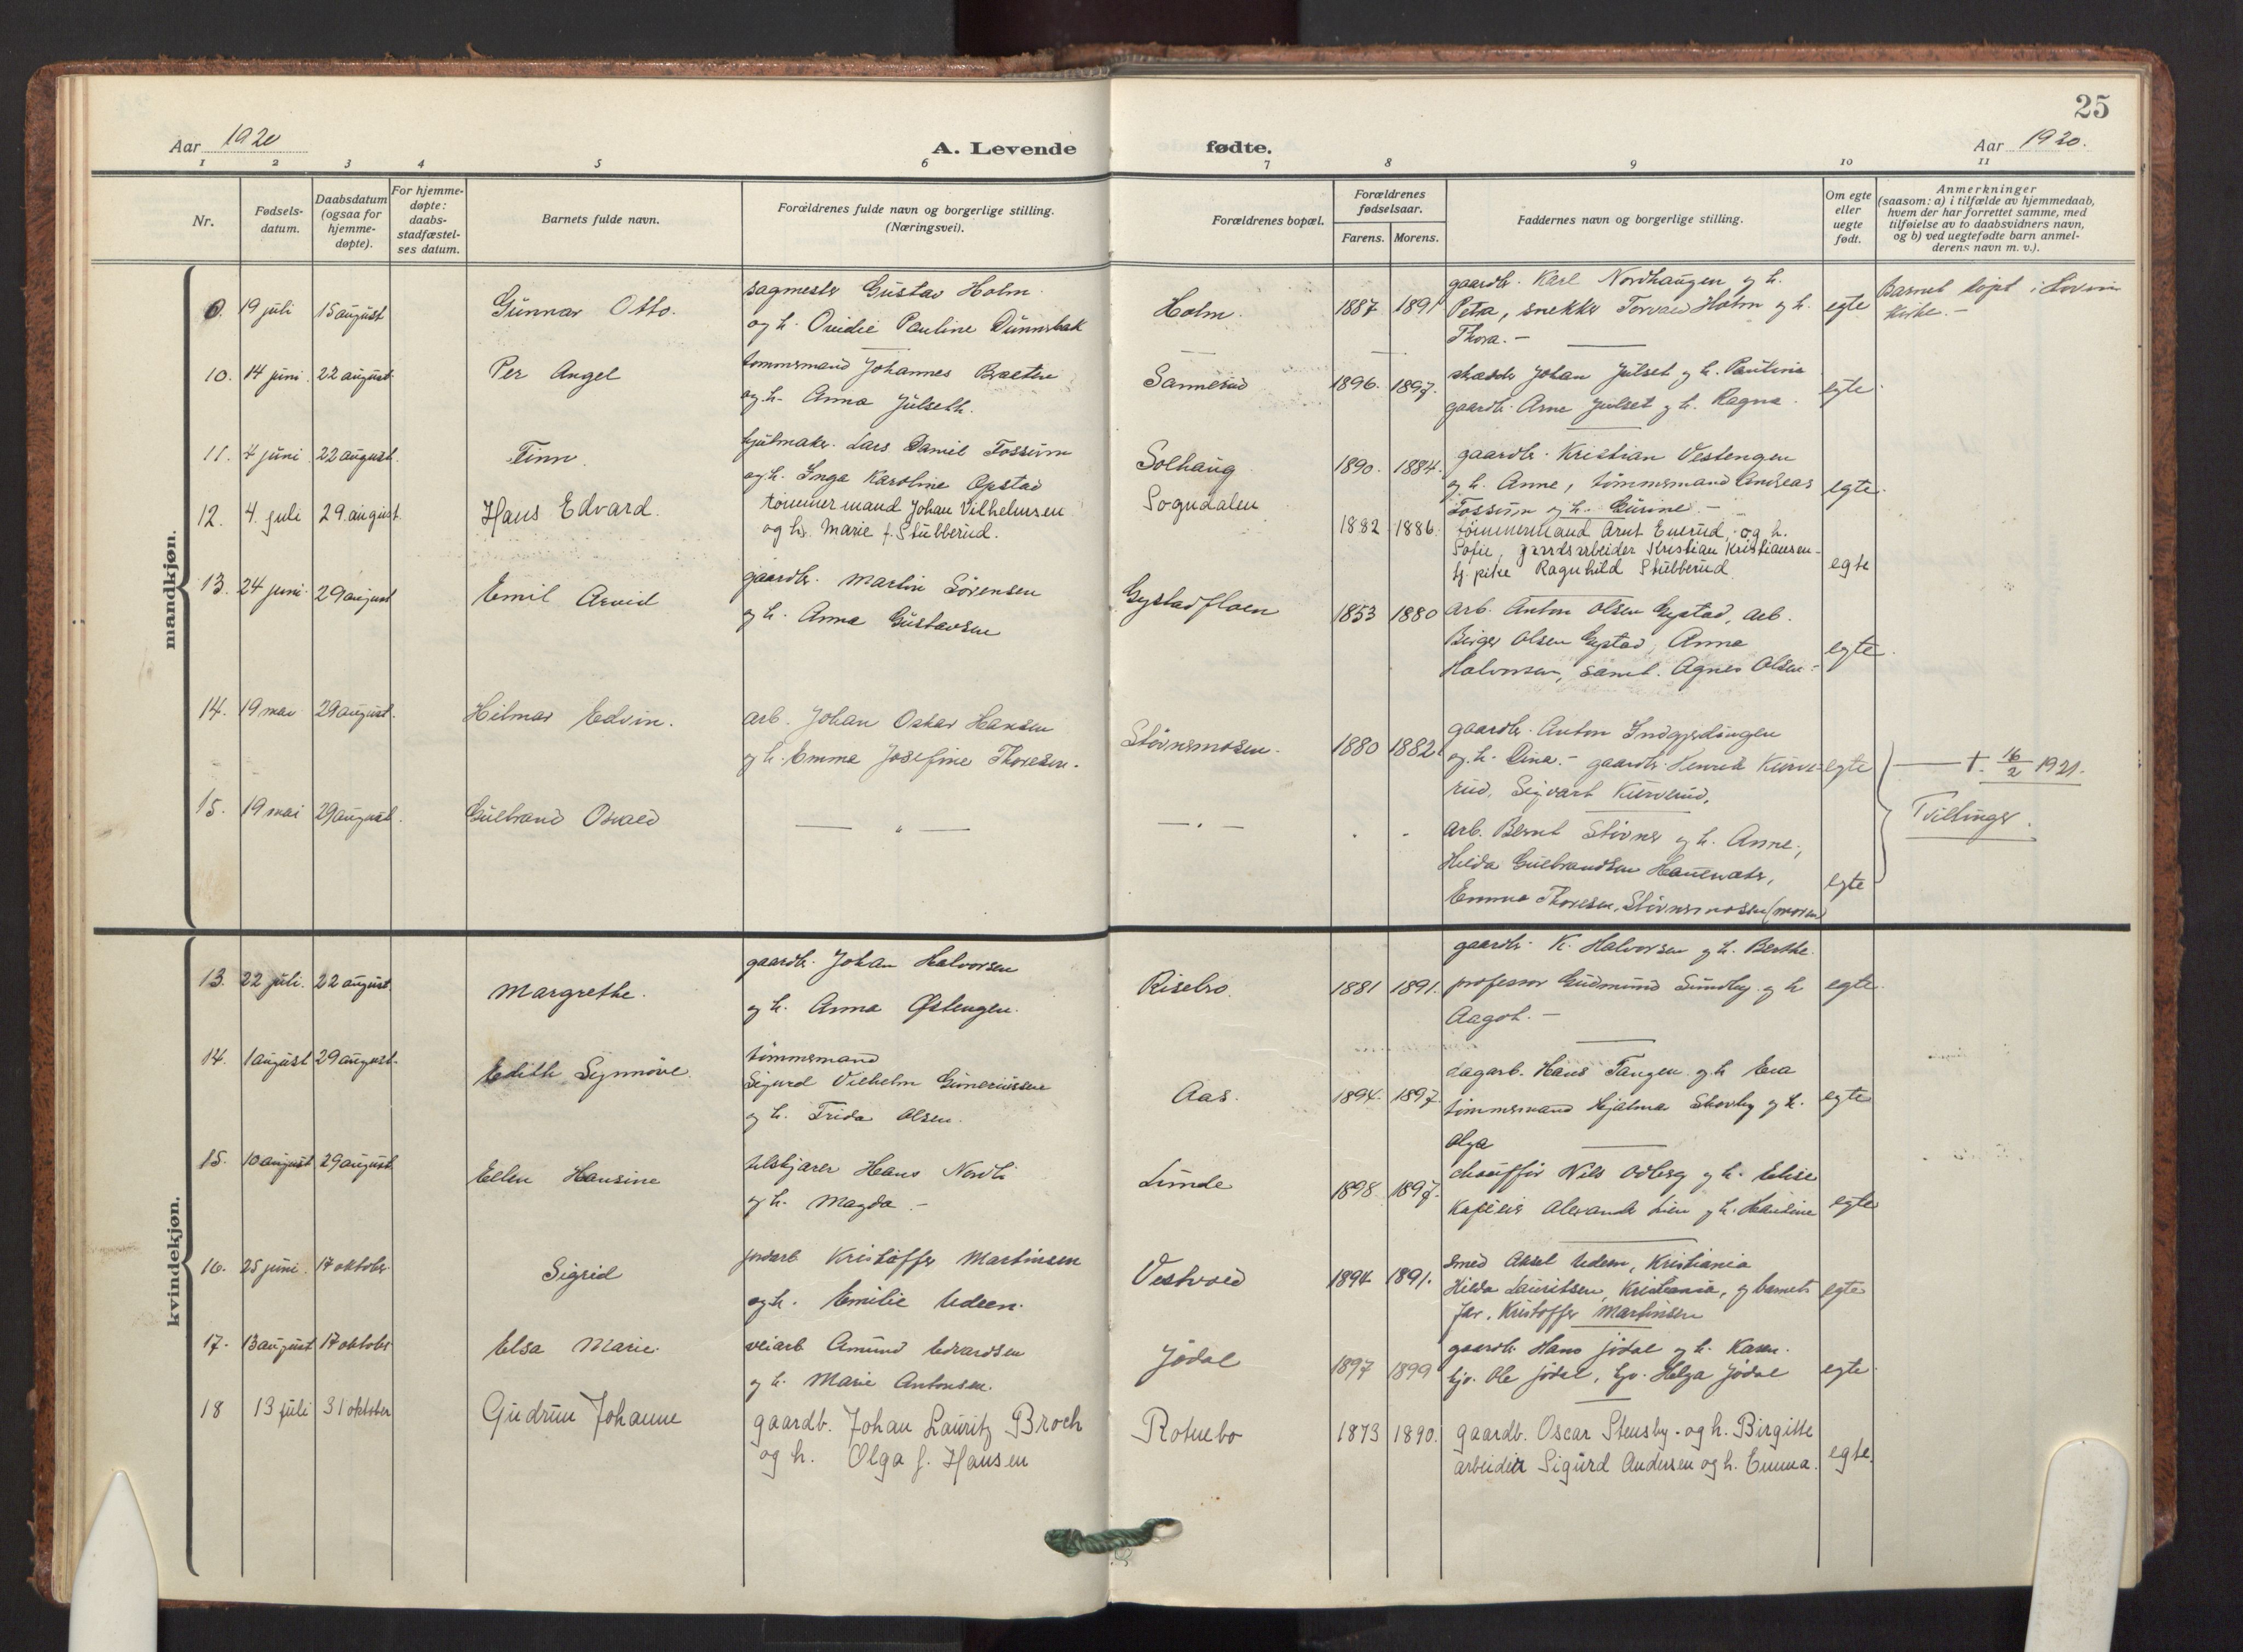 25
Aar 1920
A. Levende
fødte.
Aar 1920.
1 2 3 4 5 6 7 8 9 10 11
Nr.
Fødsels-
datum.
Daabsdatum
(ogsaa for
hjemme-
døpte).
For hjemme-
døpte:
daabs-
stadfæstel-
ses datum.
Barnets fulde navn.
Forældrenes fulde navn og borgerlige stilling.
(Næringsvei).
Forældrenes bopæl.
Forældrenes
fødselsaar.
Farens. Morens.
Faddernes navn og borgerlige stilling.
Om egte
eller
uegte
født.
Anmerkninger
(saasom: a) i tilfælde av hjemmedaab,
hvem der har forrettet samme, med
tilføielse av to daabsvidners navn,
og b) ved uegtefødte barn anmel-
derens navn m. v.).
mandkjøn.
19 juli 15 august
Gunnar Otto.
sagmester Gustav Holm
og h. Ovidie Pauline Dünnebak
Holm.
1887 1891
gaardbr. Karl Nordhaugen og h.
Petra, snekker Torvald Holm og h.
Thora. —
egte
Barnet døpt i
kirke. —
10. 14 juni 22 august.
Per Angel
tømmermand Johannes Braaten
og h. Anna Julseth.
Sannerud
1896. 1897.
skrædder Johan Julset og h. Pauline
gaardbr. Arne Julset og h. Ragna.
egte
11. 4 juni 22 august.
Finn.
hjulmaker Lars Daniel Fossum
og h. Inga Karoline Opstad
Solhaug
1890. 1884.
gaardbr. Kristian Vestengen
og h. Anne, tømmermand Andreas
Fossum og h. Gurine. —
egte.
12. 4. juli 29. august.
Hans Edvard.
tømmermand Johan Vilhelmsen
og h. Marie f. Stubberud.
Sogndalen
1882 1886
tømmermand Arnt Enerud, og h.
Sofie, gaardsarbeider Kristian Kristiansen
tj. pike Ragnhild Stubberud.
egte
13. 24 juni 29 august
Emil Arvid
gaardbr. Martin Sørensen
og h. Anna Gustavsen
Gystadfloen
1853 1880
arb. Anton Olsen Gystad, arb.
Birger Olsen Gystad, Anna
Halvorsen, samt. Agnes Olsen. —
egte.
14. 19 mai 29 august.
Hilmar Edvin.
arb. Johan Oskar Hansen
og h. Emma Josefine Thoresen.
Støvnermosen.
1880 1882
gaardbr. Anton Indgjerdingen
og h. Dina. — gaardbr. Henrik Kurve-
rud, Sigvart Kurverud.
egte
†. 16/2 1921.
15. 19 mai 29 august.
Gulbrand Osvald
— " —
— " —
arb. Bernt Støvner og h. Anne,
Hilda Gulbrandsen
Emma Thoresen, Støvnermosen (moren)
egte
Tvillinger.
kvindekjøn.
13. 22 juli. 22 august.
Margrethe.
gaardbr. Johan Halvorsen
og h. Anna Østengen.
Risebro.
1881 1891.
gaardbr. K. Halvorsen og h. Berthe.
professor Gudmund Sundby og h
Aagot. —
egte.
14. 1 august 29 august.
Edith Synnøve.
tømmermand
Sigurd Vilhelm Gunerussen
og h. Frida Olsen.
Aas.
1894. 1897.
dagarb. Hans Tangen og h Eva
tømmermand Hjalmar Skovby og h.
Olga
egte
15. 10 august 29 august.
Ellen Hansine
Hans Nordli
og h. Magda. —
Linde
1898. 1897.
chauffør Nils Odberg og h. Elise
Kafeeier Alexander Lien og h. Hansine
egte
16. 25 juni. 17 oktober
Sigrid
jordarb. Kristoffer Martinsen
og h. Emilie Udeen.
Vestvold
1894 1891.
smed Aksel Udeen, Kristiania
Hilda Lauritsen, Kristiania, og barnets
far, Kristoffer Martinsen
egte
17. 13 august 17 oktober
Elsa Marie.
veiarb Amund Edvardsen
og h. Marie Antonsen.
Jødal
1897 1899
gaardbr. Hans Jødal og h. Karen.
tj. Ole Jødal, tj. Helga Jødal
egte.
18 13 juli 31 oktober
Gudrun Johanne
gaardb. Johan Lauritz Broch
og h. Olga f. Hansen
Rotnebo
1873 1890.
gaardb. Oscar Stensby. og h. Birgitte
arbeider Sigurd Andersen og h. Emma.
egte.